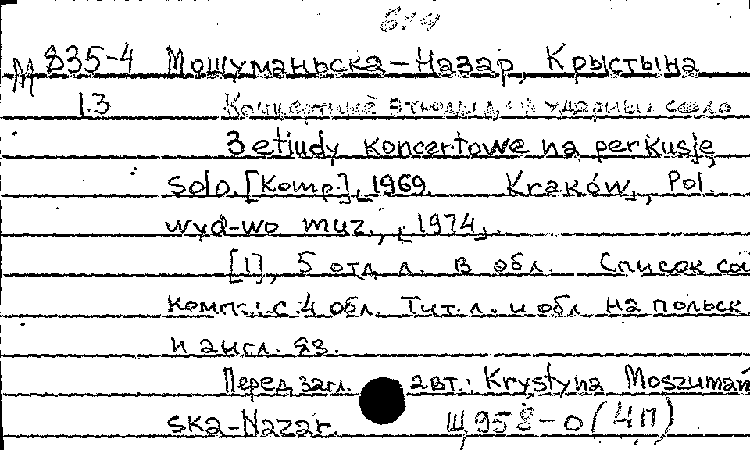 М 835-4 Мошуманьска-Назар, Крыстына
1.3 Концертные этюды для ударных соло
3 etiudy koncertowe na perkusję
solo. [Komp.], 1969. Kraków, Pol.
wyd-wo muz., [1974].
[1], 5 отд. л. в обл. Список со
комп.: с. 4 обл. Тит. л. и обл. на польск.
и англ. яз.
Перед загл. авт.: Krystyna Moszumań
ska-Nazar. Щ958-0 (4П)